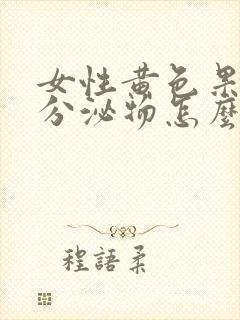 女性黄色果
分泌物怎麼
程語柔